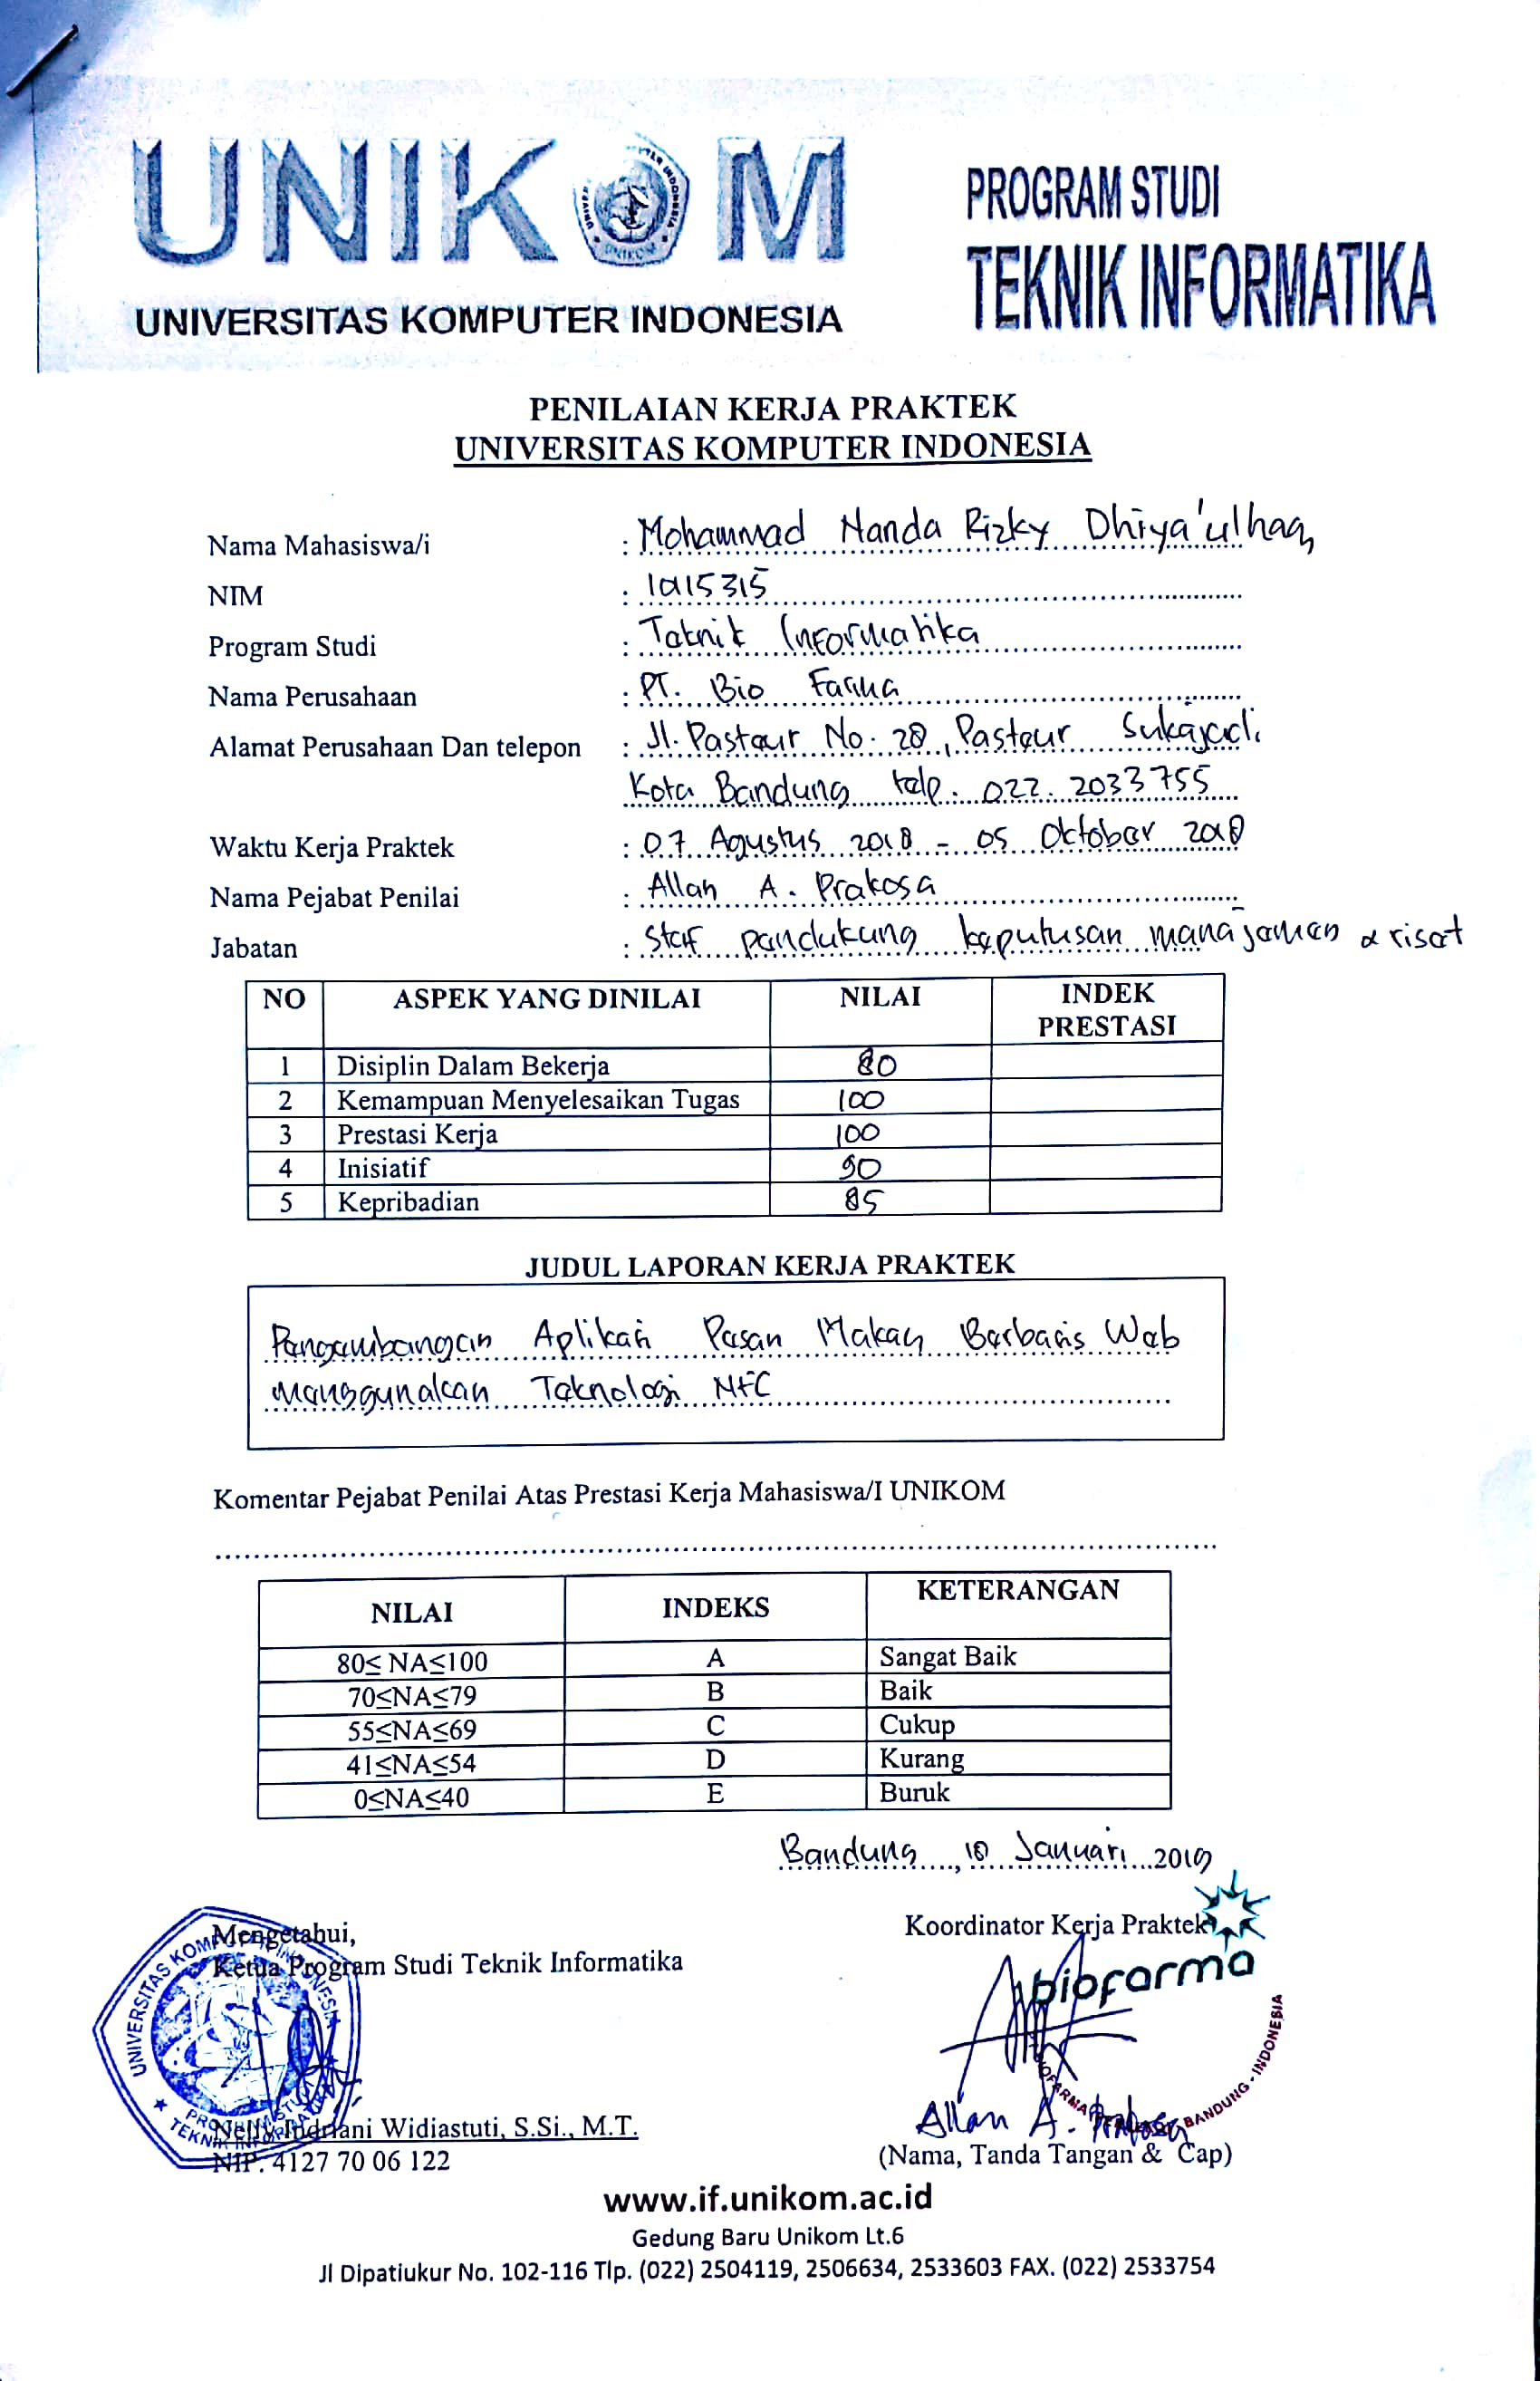 UNIKOM
PROGRAM STUDI
TEKNIK INFORMATIKA
UNIVERSITAS KOMPUTER INDONESIA
PENILAIAN KERJA PRAKTEK
UNIVERSITAS KOMPUTER INDONESIA
Nama Mahasiswa/i : Mohammad Nanda Rizky Dhiya'ulhaq
NIM : 10115315
Program Studi : Teknik Informatika
Nama Perusahaan : PT. Bio Farma
Alamat Perusahaan Dan telepon : Jl. Pasteur No. 28, Pasteur Sukajadi
Kota Bandung telp. 022. 2033755
Waktu Kerja Praktek : 07 Agustus 2018 - 05 Oktober 2018
Nama Pejabat Penilai : Allan A. Prakosa
Jabatan : Staf pendukung keputusan manajemen & riset
NO ASPEK YANG DINILAI NILAI INDEK PRESTASI
1 Disiplin Dalam Bekerja 80
2 Kemampuan Menyelesaikan Tugas 100
3 Prestasi Kerja 100
4 Inisiatif 90
5 Kepribadian 85
JUDUL LAPORAN KERJA PRAKTEK
Pengembangan Aplikasi Pesan Makan Berbasis Web
Menggunakan Teknologi NFC
Komentar Pejabat Penilai Atas Prestasi Kerja Mahasiswa/I UNIKOM
NILAI INDEKS KETERANGAN
80≤ NA≤100 A Sangat Baik
70≤NA≤79 B Baik
55≤NA≤69 C Cukup
41≤NA≤54 D Kurang
0≤NA≤40 E Buruk
Bandung, 18 Januari 2019
Mengetahui,
Ketua Program Studi Teknik Informatika
Koordinator Kerja Praktek
biofarma
BANDUNG - INDONESIA
UNIVERSITAS KOMPUTER INDONESIA
PROGRAM STUDI
TEKNIK INFORMATIKA
Nelly Indriani Widiastuti, S.Si., M.T.
NIP. 4127 70 06 122
Allan A. Prakosa
(Nama, Tanda Tangan & Cap)
www.if.unikom.ac.id
Gedung Baru Unikom Lt.6
Jl Dipatiukur No. 102-116 Tlp. (022) 2504119, 2506634, 2533603 FAX. (022) 2533754